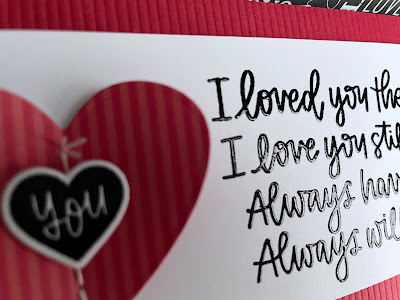 YOU
I loved you the
I love you stil
Always hav
Always will